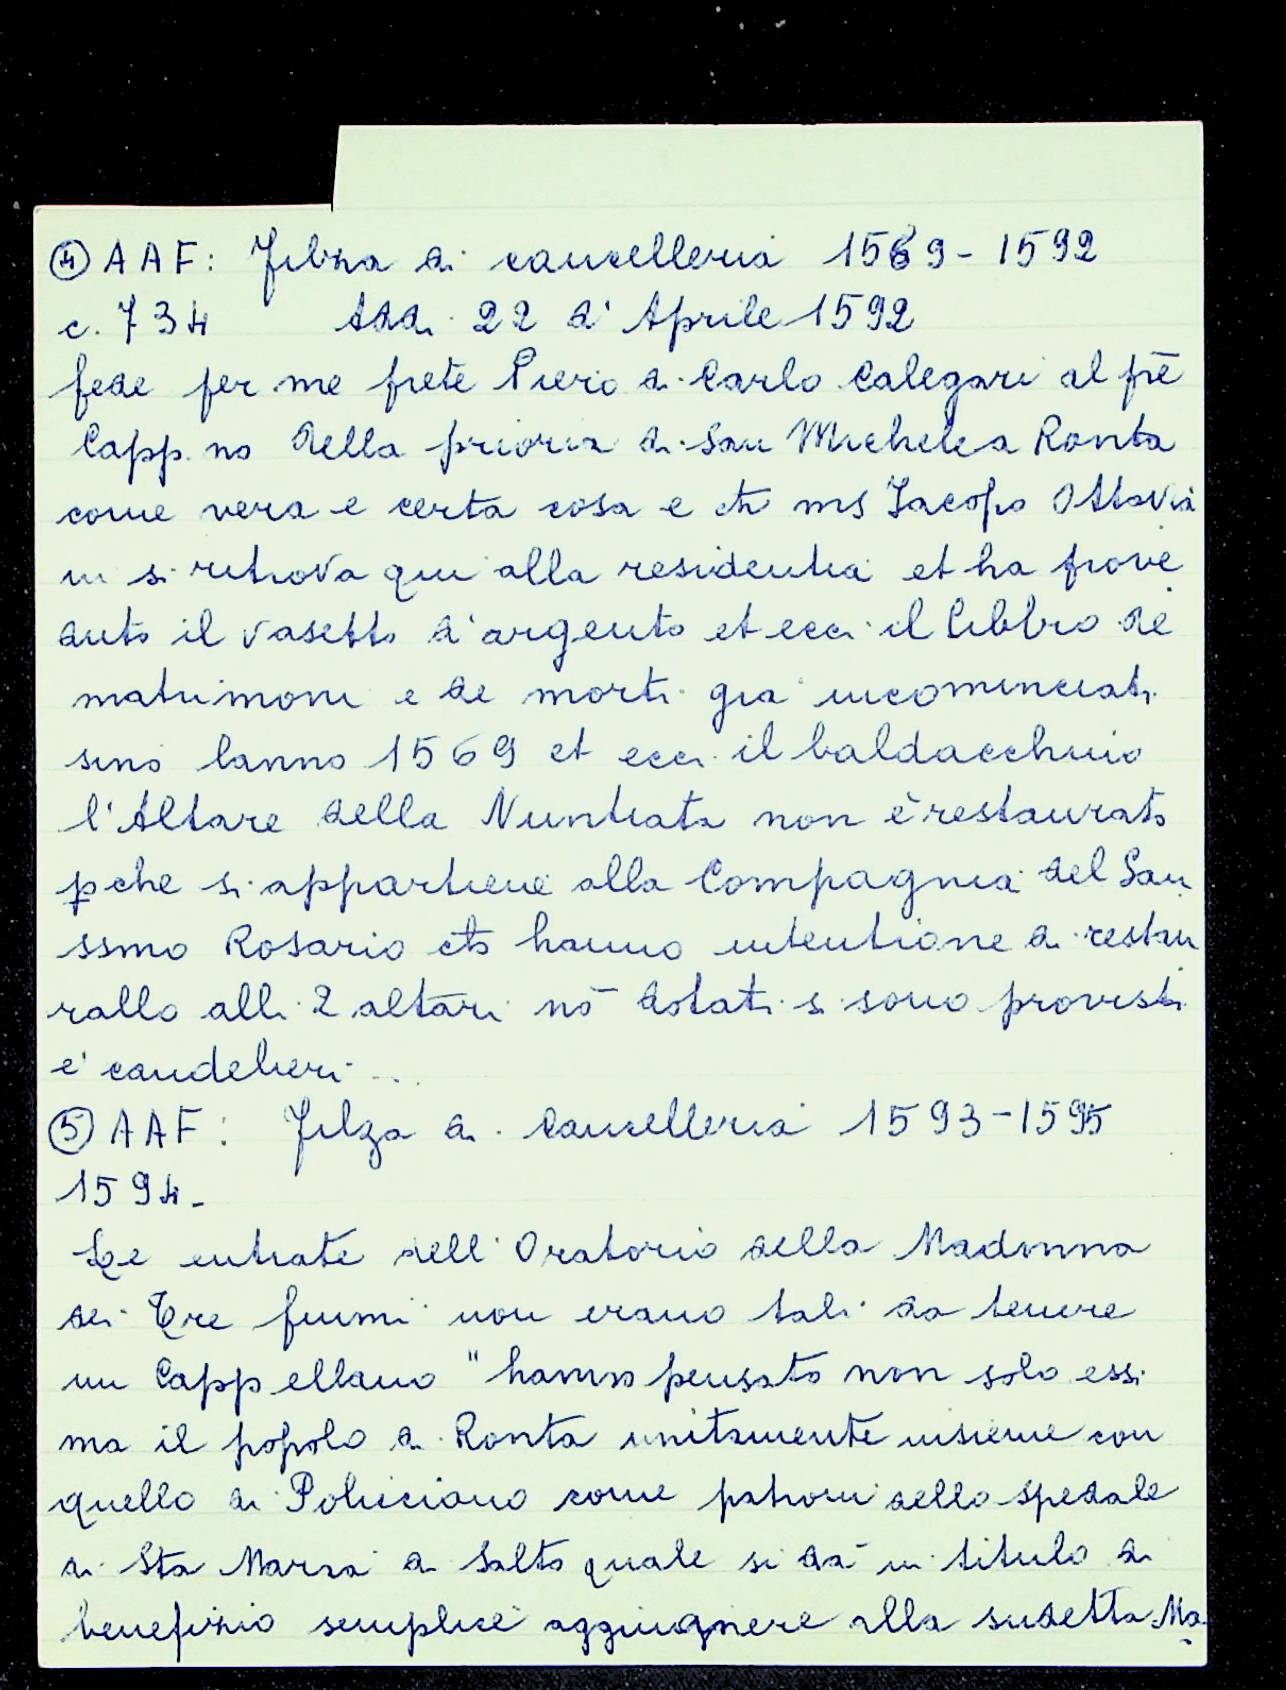 ④ AAF: Filza di cancelleria 1569-1592
c. 734 Addi 22 d'Aprile 1592
fede per me prete Piero di Carlo Calegari al prē
Capp.no della prioria di San Michele a Ronta
come vera e certa cosa e ch ms Jacopo Ottavia
ni si ritrova qui alla residentia et ha prove
duto il vasetto d'argento et ecci il libbro de
matrimoni e de morti gia incominciati
sino lanno 1569 et ecci il baldacchino
l'Altare della Nuntiata non è restaurato
pche si appartiene alla Compagnia del San
ssmo Rosario ch hanno intentione di restau
rallo alli 2 altari nō dotati si sono provisti
e' candelieri ...
⑤ AAF: Filza di Cancelleria 1593-1595
1594-
Le entrate dell'Oratorio della Madonna
dei Tre fiumi non erano tali da tenere
un Cappellano "hanno pensato non solo essi
ma il popolo di Ronta unitamente insieme con
quello di Pulicciano come patroni dello spedale
di Sta Maria a Salto quale si dà in titulo di
benefizio semplice aggiugnere alla sudetta Ma